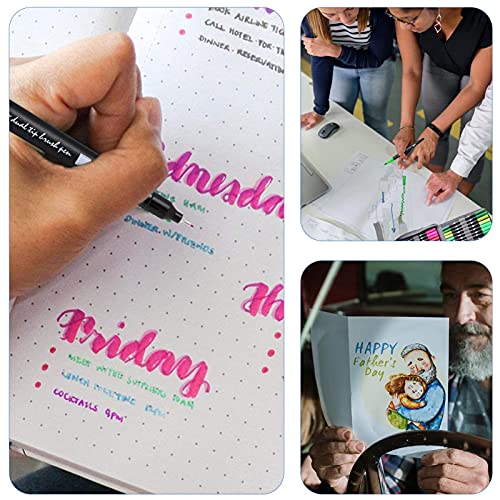 BOOK AIRLINE TIC
CALL HOTEL FOR TH
DINNER RESERVATION
dual tip brush pen
Wednesday
9AM
DINNER W/FRIENDS
Th
Friday
MEET WITH SUPPLIERS 10AM
COCKTAILS 9PM
HAPPY
Father's
Day